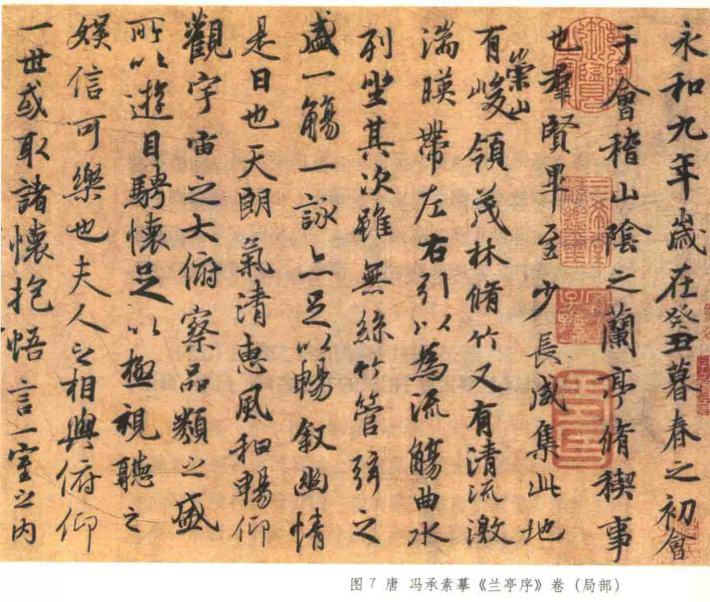 永和九年歲在癸丑暮春之初會
于會稽山陰之蘭亭脩稧事
也群賢畢至少長咸集此地
有崇山峻領茂林脩竹又有清流激
湍暎帶左右引以為流觴曲水
列坐其次雖無絲竹管弦之
盛一觴一詠亦足以暢叙幽情
是日也天朗氣清惠風和暢仰
觀宇宙之大俯察品類之盛
所以遊目騁懷足以極視聽之
娛信可樂也夫人之相與俯仰
一世或取諸懷抱悟言一室之内
图7 唐 冯承素摹《兰亭序》卷（局部）